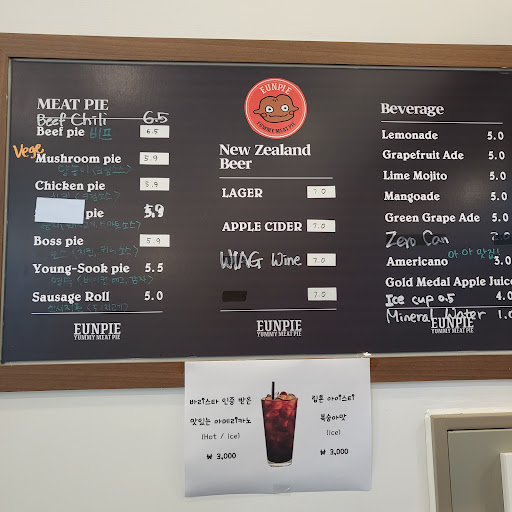 MEAT PIE
Beef Chili 6.5
Beef pie 비프 6.5
Vege
Mushroom pie 5.9
Chicken pie 5.9
pie 5.9
Boss pie 5.9
Young-Sook pie 5.5
Sausage Roll 5.0
EUNPIE
YUMMY MEAT PIE
EUNPIE
YUMMY MEAT PIE
New Zealand
Beer
LAGER 7.0
APPLE CIDER 7.0
WING Wine 7.0
7.0
EUNPIE
YUMMY MEAT PIE
Beverage
Lemonade 5.0
Grapefruit Ade 5.0
Lime Mojito 5.0
Mangoade 5.0
Green Grape Ade 5.0
Zero Can 2.0
아·아 맛집!
Americano 3.0
Gold Medal Apple Juice
Ice cup 0.5 4.0
Mineral Water 1.0
EUNPIE
YUMMY MEAT PIE
바리스타 인증 받은
맛있는 아메리카노
(Hot / Ice)
₩ 3,000
립톤 아이스티
복숭아맛
(Ice)
₩ 3,000